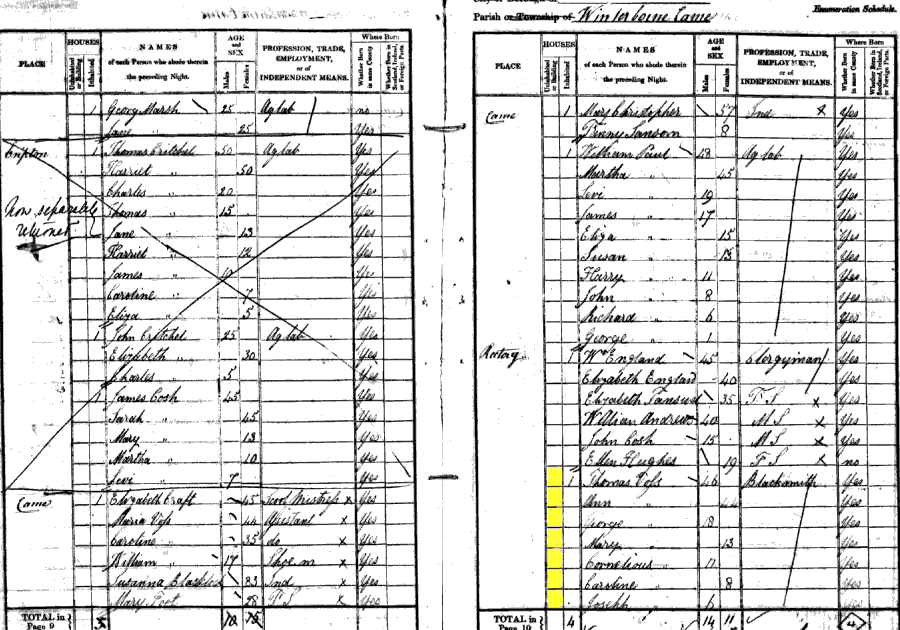 PLACE
HOUSES
Uninhabited or Building
Inhabited
NAMES of each Person who abode therein the preceding Night.
AGE and SEX
Males
Females
PROFESSION, TRADE, EMPLOYMENT, or of INDEPENDENT MEANS.
Where Born
Whether Born in same County
Whether Born in Scotland, Ireland, or Foreign Parts.
1 Georg Marsh 25 Ag lab no
Jane " 25 Yes
1 Thomas Critchel 50 Ag lab Yes
Harriet " 50 Yes
Charles " 20 Yes
Now separately returned
Thomas " 15 Yes
Jane " 13 Yes
Harriet " 12 Yes
James " 10 Yes
Caroline " 7 Yes
Eliza " 5 Yes
1 John Critchel 25 Ag lab Yes
Elizabeth " 30 Yes
Charles " 5 Yes
1 James Cosh 45 Yes
Sarah " 45 Yes
Mary " 13 Yes
Martha " 10 Yes
Levi " 7 Yes
Came 1 Elizabeth 45 Scool Mistress x Yes
Maria Voss 44 x Yes
Caroline " 35 do x Yes
William " 17 Shoe m x Yes
Susanna 83 Ind x Yes
Mary Foot 28 F S x Yes
TOTAL in Page 9 5
Parish or Township of Winterborne Came
Enumeration Schedule.
PLACE
HOUSES
Uninhabited or Building
Inhabited
NAMES of each Person who abode therein the preceding Night.
AGE and SEX
Males
Females
PROFESSION, TRADE, EMPLOYMENT, or of INDEPENDENT MEANS.
Where Born
Whether Born in same County
Whether Born in Scotland, Ireland, or Foreign Parts.
Came 1 Mary Christopher 57 Ind x Yes
Fenny Sansom 8 Yes
1 William Paul 48 Ag lab Yes
Martha 45 Yes
Levi " 19 Yes
James " 17 Yes
Eliza " 15 Yes
Susan " 13 Yes
Harry " 11 Yes
John " 8 Yes
Richard " 6 Yes
George " 1 Yes
Rectory 1 Wm England 45 Clergyman Yes
Elizabeth England 40 Yes
Elizabeth 35 F S x Yes
William Andrews 40 M S x Yes
John Cosh 15 M S x Yes
Ellen Hughes 19 F S x no
1 Thomas Voss 46 Blacksmith Yes
Ann " 44 Yes
George " 18 Yes
Mary " 13 Yes
Cornelious " 11 Yes
Caroline " 8 Yes
Joseph " 6 Yes
TOTAL in Page 10 4 14 11